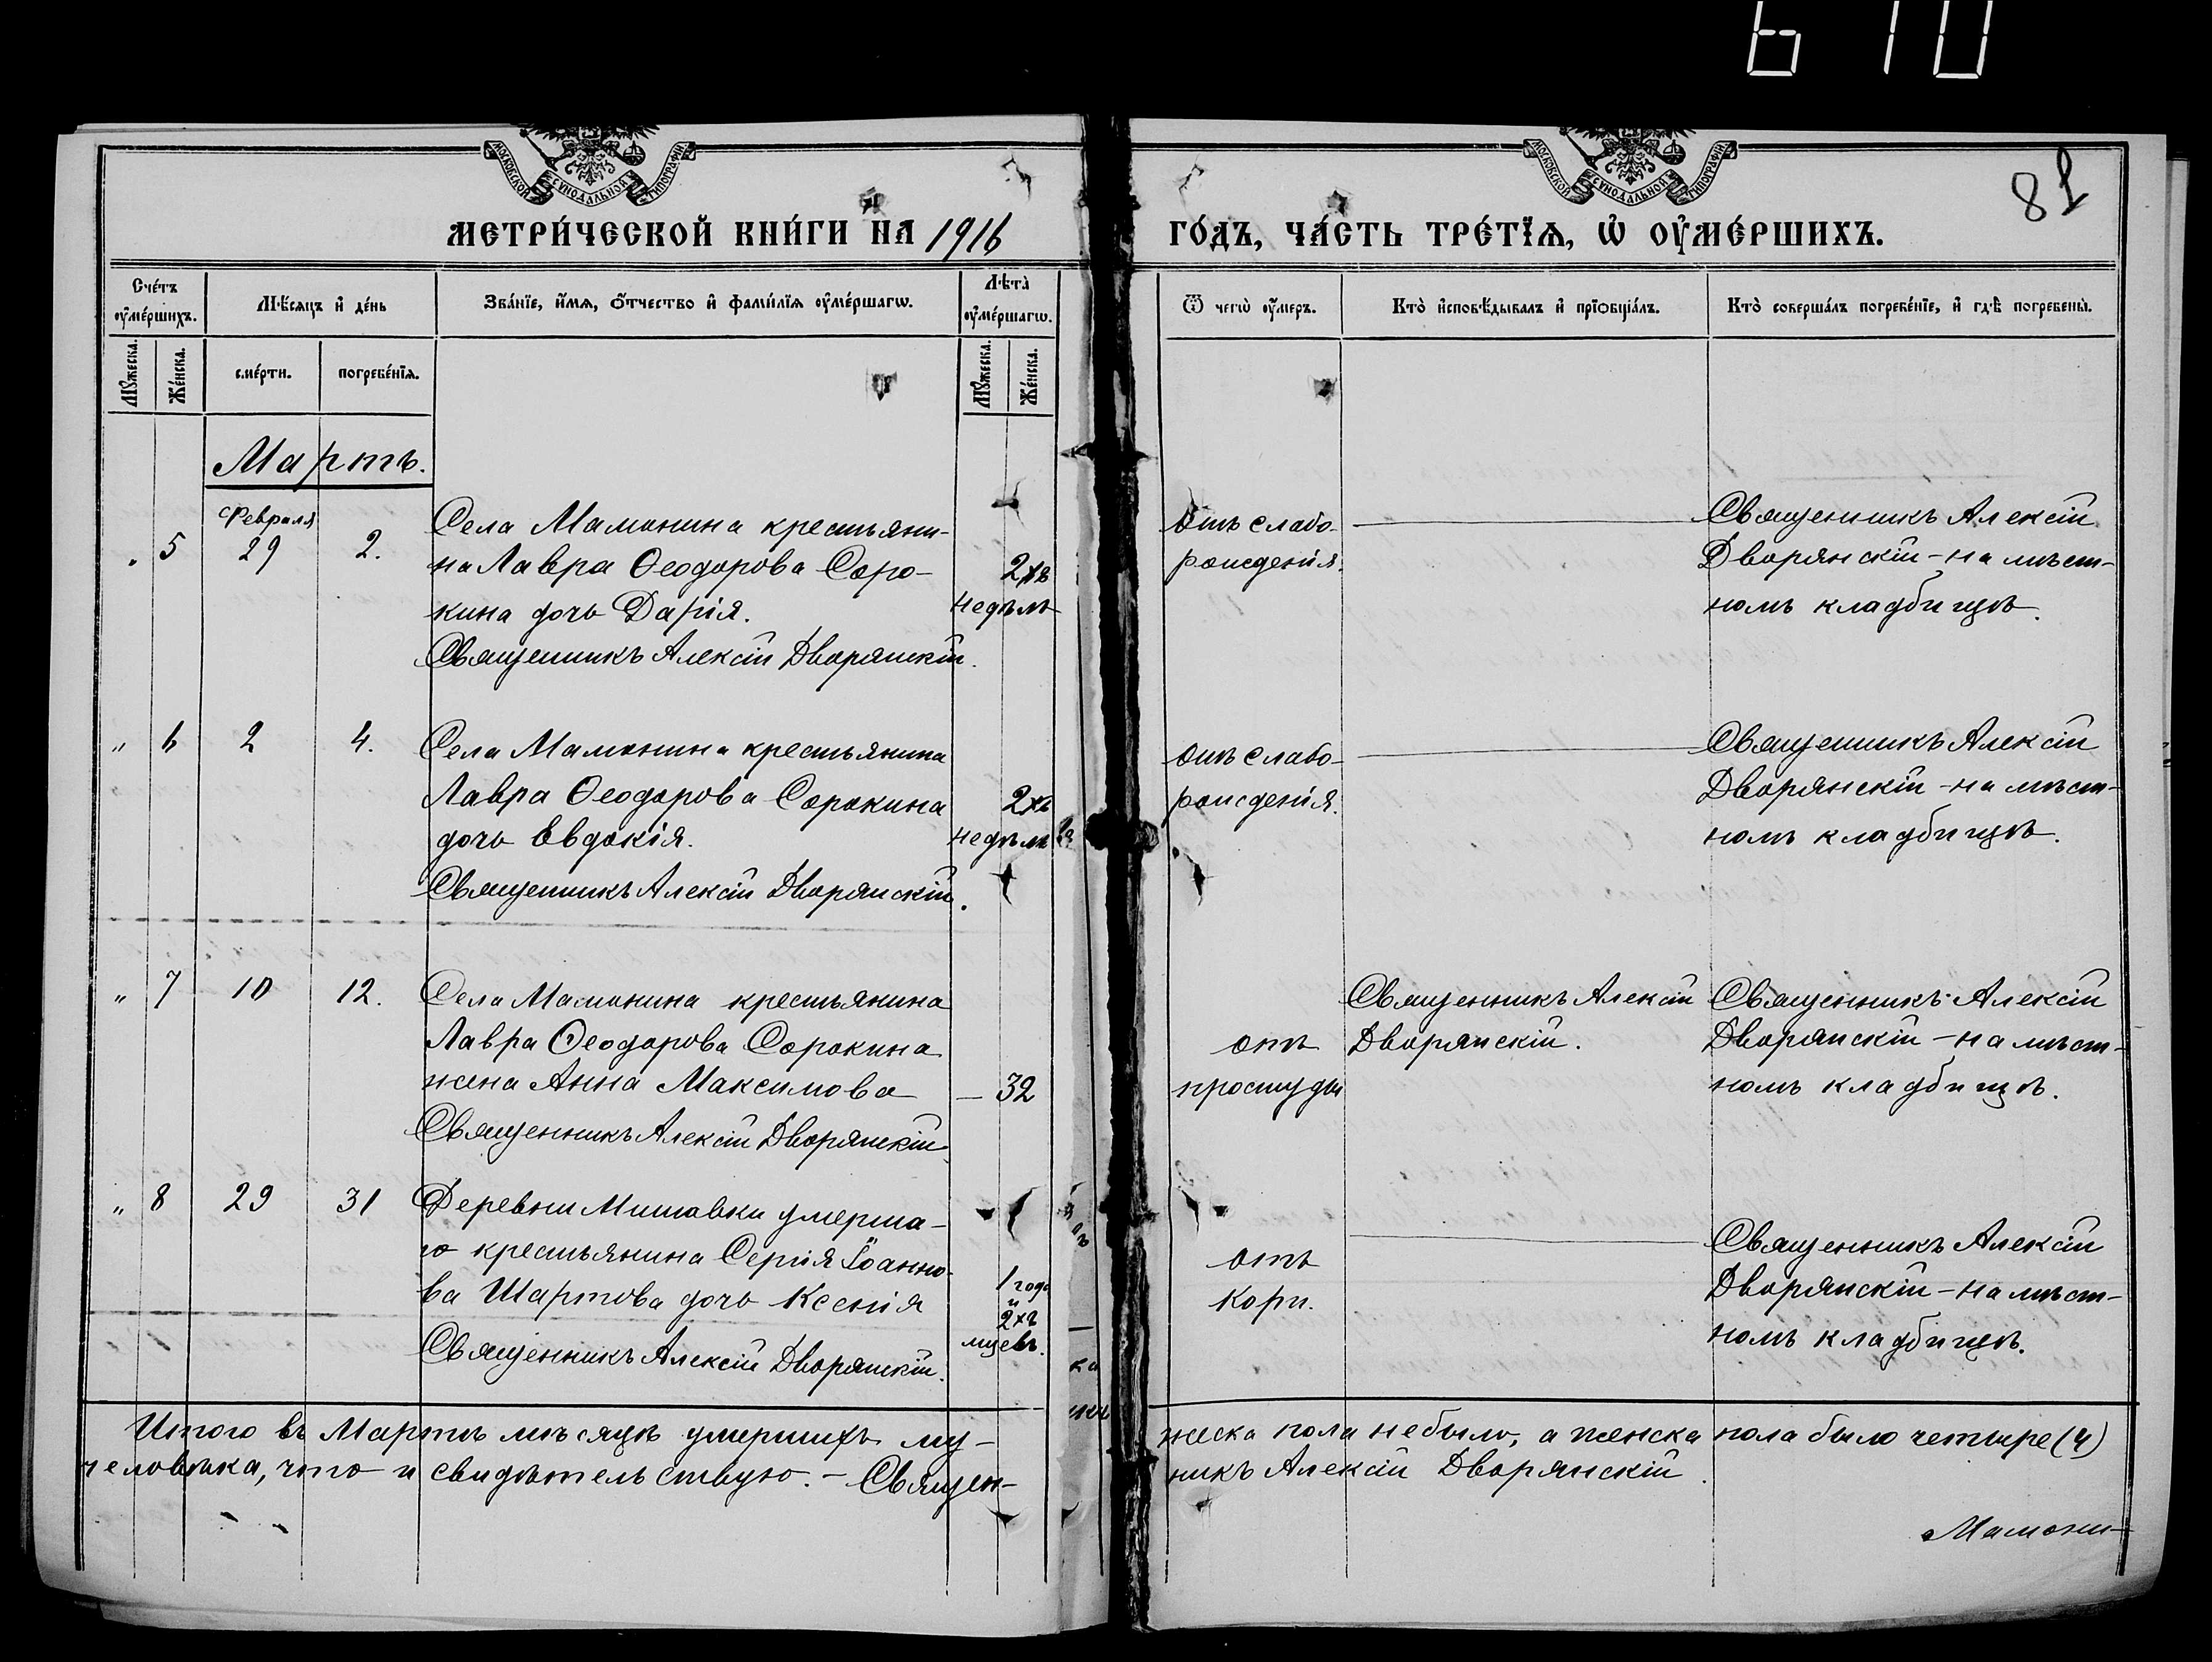 610
МОСКОВСКОЙ СѴНОДАЛЬНОЙ ТИПОГРАФІИ
МОСКОВСКОЙ СѴНОДАЛЬНОЙ ТИПОГРАФІИ
81
МЕТРИ́ЧЕСКОЙ КНИ́ГИ НА 1916
ГО́ДЪ, ЧА́СТЬ ТРЕ́ТЇѦ, Ѡ҆ ОУ҆МЕ́РШИХЪ.
Сче́тъ
оу҆ме́ршихъ.
Мѣ́сяцъ и҆ де́нь
Зва́нїе, и҆́мѧ, ѻ҆́тчество и҆ фами́лїѧ оу҆ме́ршагѡ.
Лѣта̀
оу҆ме́ршагѡ.
Ѿ чегѡ̀ оу҆́меръ.
Кто̀ и҆сповѣ́дывалъ и҆ прїѻбща́лъ.
Кто̀ соверша́лъ погребе́нїе, и҆ гдѣ̀ погребены̀.
Мꙋ́жеска.
Же́нска.
сме́рти.
погребе́нїѧ.
Мꙋ́жеска.
Же́нска.
Мартъ.
Февраля
" 5 29 2.
Села Мамонина крестьяни-
на Лавра Ѳеодорова Соро-
кина дочь Дарія.
Священникъ Алексій Дворянскій.
2хъ
недѣль
отъ слабо-
рожденія.
Священникъ Алексій
Дворянскій - на мѣст-
номъ кладбищѣ.
" 6 2 4.
Села Мамонина крестьянина
Лавра Ѳеодорова Сорокина
дочь Евдокія.
Священникъ Алексій Дворянскій.
2хъ
недѣль
отъ слабо-
рожденія.
Священникъ Алексій
Дворянскій - на мѣст-
номъ кладбищѣ.
" 7 10 12.
Села Мамонина крестьянина
Лавра Ѳеодорова Сорокина
жена Анна Максимова
Священникъ Алексій Дворянскій.
— 32
отъ
простуды
Священникъ Алексій
Дворянскій.
Священникъ Алексій
Дворянскій - на мѣст-
номъ кладбищѣ.
" 8 29 31
Деревни Мишовки умерша-
го крестьянина Сергія Іоанно-
ва Шартова дочь Ксенія
Священникъ Алексій Дворянскій.
1 годъ
и
2хъ
мцевъ.
отъ
кори.
Священникъ Алексій
Дворянскій - на мѣст-
номъ кладбищѣ.
Итого въ Мартѣ мѣсяцѣ умершихъ му-
жеска пола не было, а женска пола было четыре (4)
человѣка, что и свидѣтельствую. - Священ-
никъ Алексій Дворянскій.
Мамони-